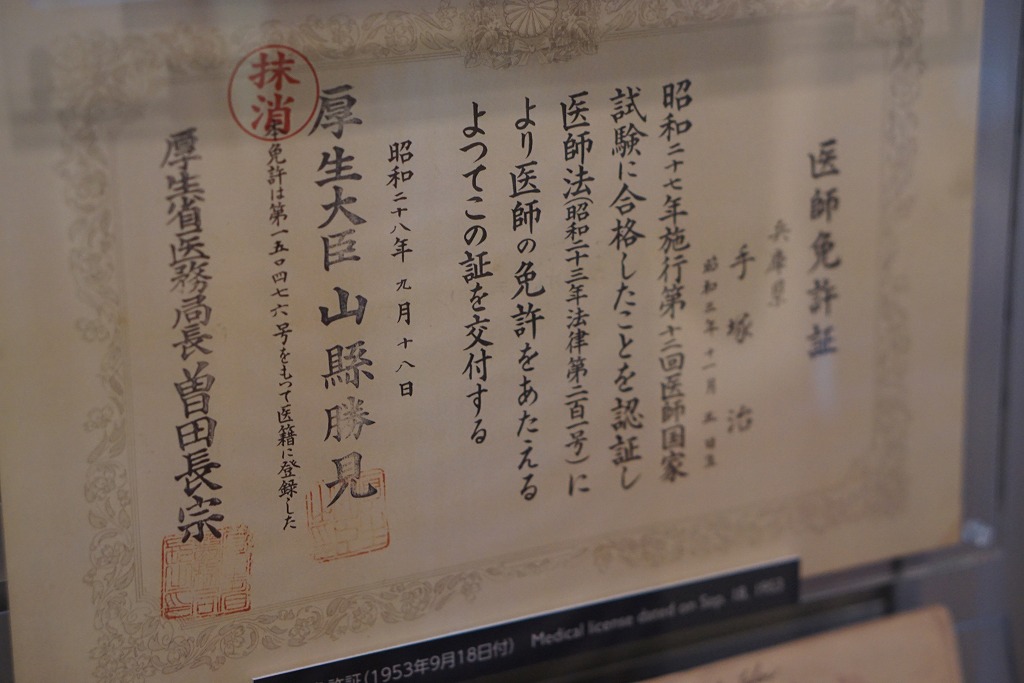 医師免許証
兵庫県
手塚治
昭和三年十一月三日生
昭和二十七年施行第十三回医師国家
試験に合格したことを認証し
医師法(昭和二十三年法律第二百一号)に
より医師の免許をあたえる
よつてこの証を交付する
昭和二十八年九月十八日
厚生大臣 山縣勝見
本免許は第一五〇四七六号をもつて医籍に登録した
抹消
厚生省医務局長 曽田長宗
許証(1953年9月18日付) Medical license dated on Sep. 18, 1953